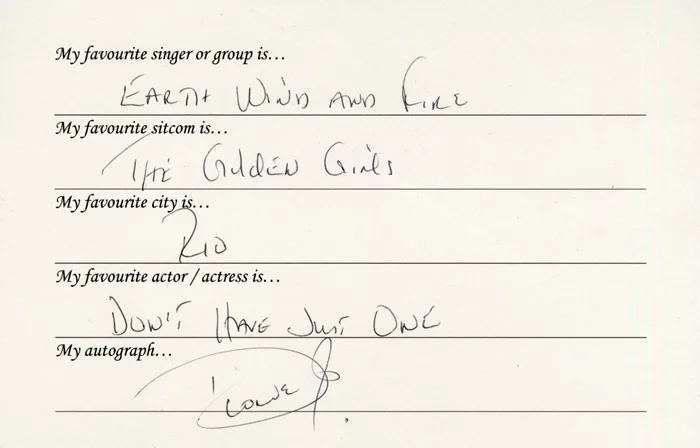 My favourite singer or group is...
EARTH WIND AND FIRE
My favourite sitcom is...
THE GOLDEN GIRLS
My favourite city is...
RIO
My favourite actor / actress is...
DON'T HAVE JUST ONE
My autograph...